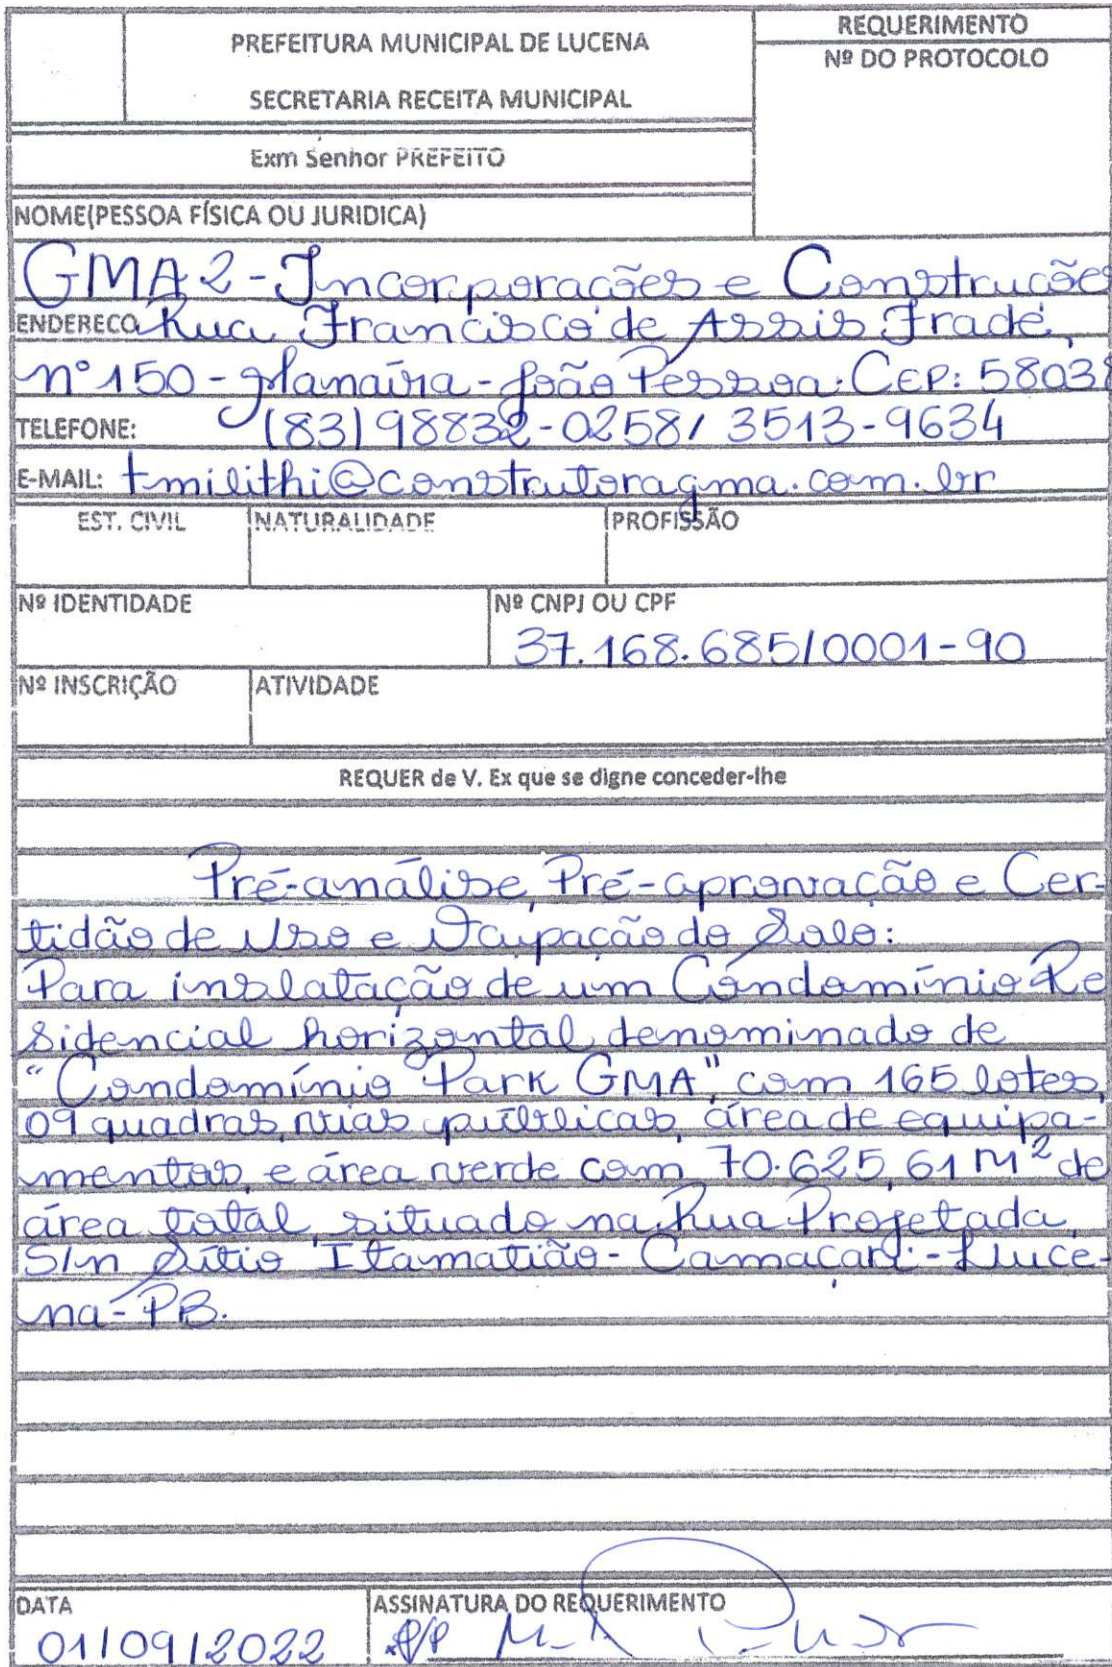 PREFEITURA MUNICIPAL DE LUCENA
SECRETARIA RECEITA MUNICIPAL
REQUERIMENTO
Nº DO PROTOCOLO
Exm Senhor PREFEITO
NOME(PESSOA FÍSICA OU JURIDICA)
GMA 2 - Incorporações e Construçõe
ENDEREÇO Rua Francisco de Assis Frade,
nº 150 - Manaíra - João Pessoa. CEP: 58038
TELEFONE: (83) 98832-0258 / 3513-9634
E-MAIL: tmilithi@construtoragma.com.br
EST. CIVIL NATURALIDADE PROFISSÃO
Nº IDENTIDADE Nº CNPJ OU CPF
37.168.685/0001-90
Nº INSCRIÇÃO ATIVIDADE
REQUER de V. Ex que se digne conceder-lhe
Pré-análise, Pré-aprovação e Cer-
tidão de Uso e Ocupação do Solo:
Para inslatação de um Condomínio Re
sidencial horizontal, denominado de
"Condomínio Park GMA", com 165 lotes,
09 quadras, vias públicas, área de equipa-
mentos, e área verde com 70.625,61 M² de
área total, situado na Rua Projetada,
S/n Sítio Itamatião - Camaçari - Luce-
na - PB.
DATA ASSINATURA DO REQUERIMENTO
01/09/2022 P/P